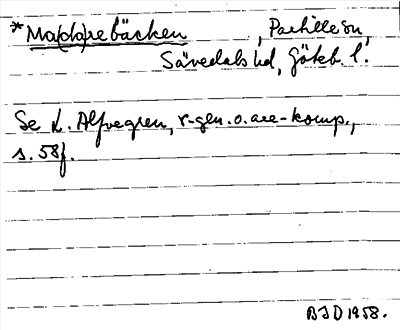 *Ma(d)arebäcken, Partille sn,
Sävedals hd, Göteb. l.
Se L. Alfvegren, r-gen. o. are-komp.,
s. 58 f.
BJD 1958.